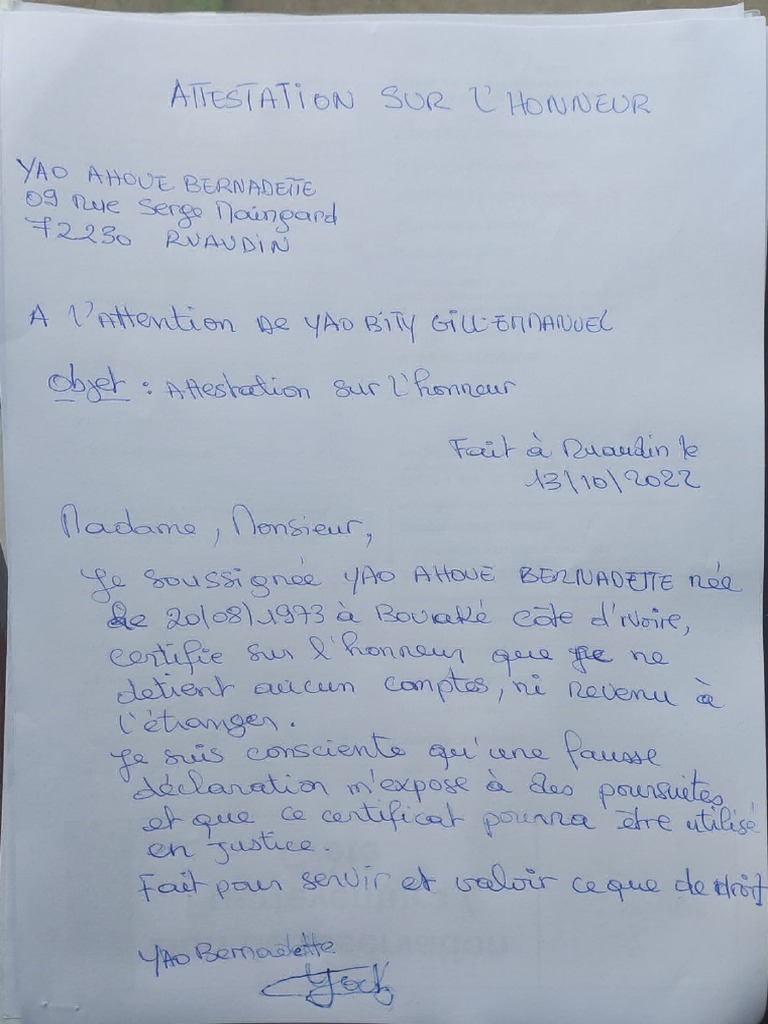 ATTESTATION SUR L'HONNEUR
YAO AHOUE BERNADETTE
09 Rue Serge Maingard
72230 RUAUDIN
A l'Attention de YAO BITY GILL-EMMANUEL
Objet : Attestation sur l'honneur
Fait à Ruaudin le
13/10/2022
Madame, Monsieur,
Je soussignée YAO AHOUE BERNADETTE née
le 20/08/1973 à Bouaké côte d'ivoire,
certifie sur l'honneur que je ne
detient aucun comptes, ni revenu à
l'étranger.
Je suis consciente qu'une fausse
déclaration m'expose à des poursuites
et que ce certificat pourra être utilisé
en justice.
Fait pour servir et valoir ce que de droit
YAO Bernadette